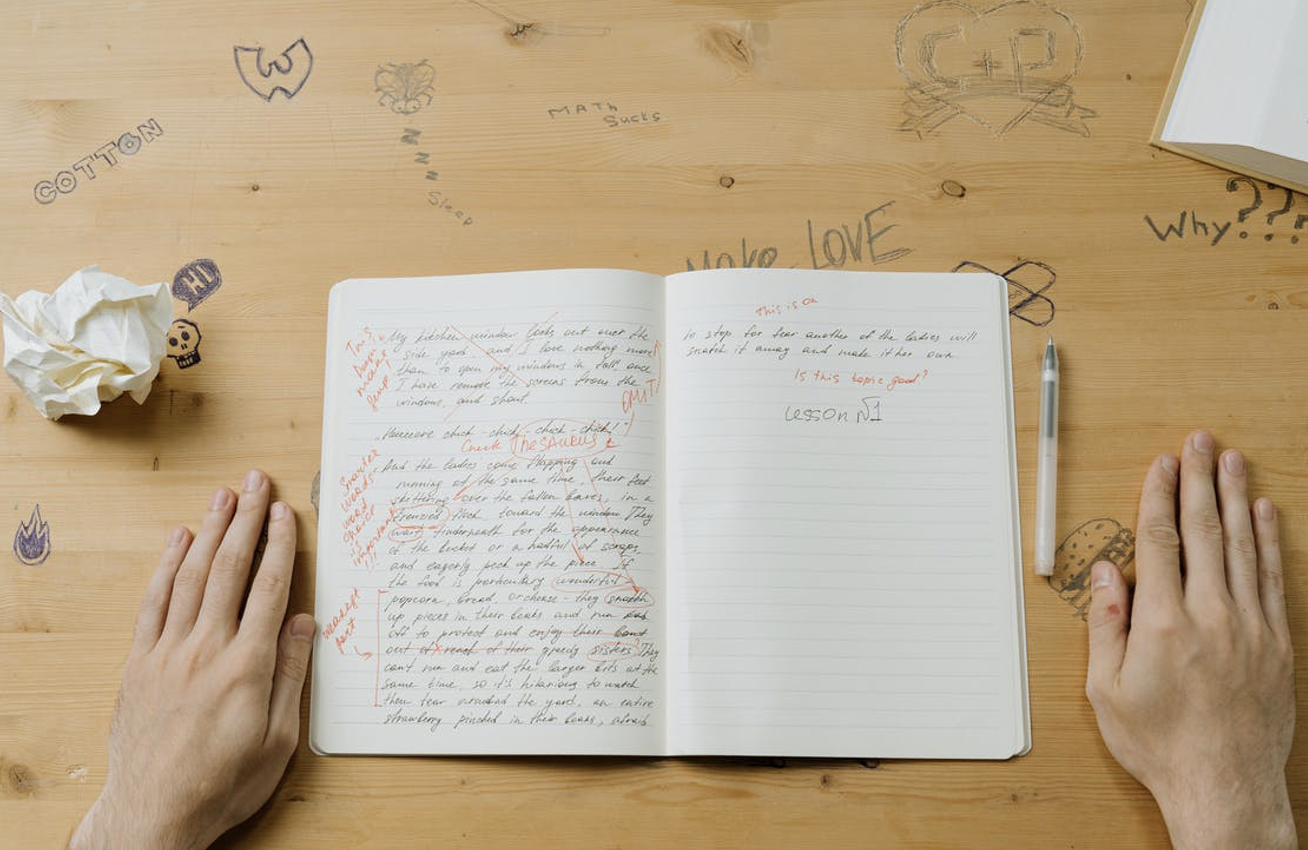 W
COTTON
MATH
Sucks
N
N
N
N
Sleep
C+P
HI
Make LOVE
Why???
My kitchen window looks out over the
side yard and I love nothing more
than to open my windows in fall once
I have remove the screens from the
windows, and shout.
OMIT
chick-chick-chick-chick!"
Check Thesaurus
And the ladies come flapping and
running at the same time, their feet
skittering over the fallen leaves, in a
frenzied flock toward the window They
wait underneath for the appearance
of the bucket or a handful of scraps,
and eagerly peck up the piece. If
the food is particulary wonderful
popcorn, bread, or cheese - they snatch
up pieces in their beaks and run
off to protect and enjoy their
out of reach of their greedy sisters They
can't run and eat the larger bits at the
same time, so it's hilarious to watch
them tear around the yard, an entire
strawberry pinched in their beaks, afraid
Smarter
words
word
choice
is
important
!!!
weakest
part
this is ok
to stop for fear another of the ladies will
snatch it away and make it her own
Is this topic good?
Lesson №1